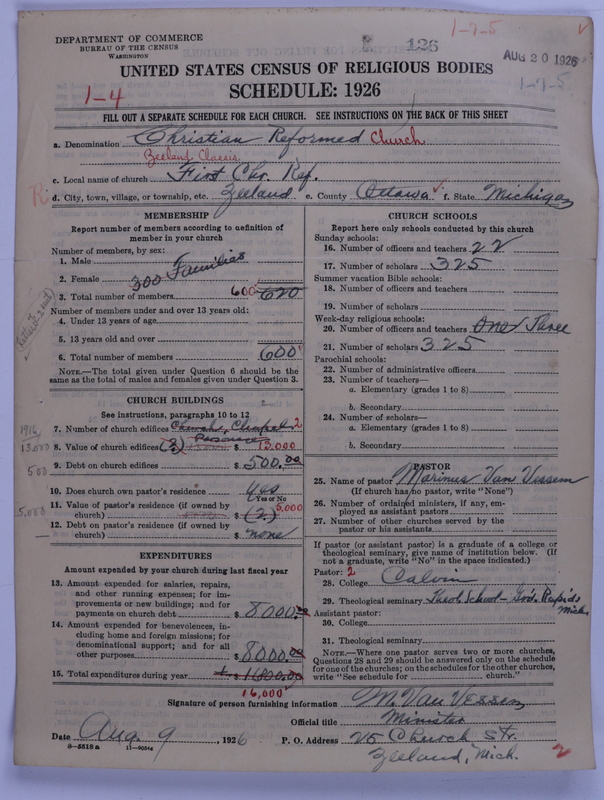 DEPARTMENT OF COMMERCE
BUREAU OF THE CENSUS
WASHINGTON
126
1-7-5
AUG 20 1926
1-7-5
UNITED STATES CENSUS OF RELIGIOUS BODIES
SCHEDULE: 1926
1-4
FILL OUT A SEPARATE SCHEDULE FOR EACH CHURCH. SEE INSTRUCTIONS ON THE BACK OF THIS SHEET
a. Denomination Christian Reformed Church
Zeeland Classis
c. Local name of church First Chr. Ref.
d. City, town, village, or township, etc. Zeeland e. County Ottawa f. State Michigan
MEMBERSHIP
Report number of members according to definition of
member in your church
Number of members, by sex:
1. Male
2. Female 300 Families
3. Total number of members 600 620
Number of members under and over 13 years old:
4. Under 13 years of age
5. 13 years old and over
6. Total number of members 600
NOTE.—The total given under Question 6 should be
same as the total of males and females given under Question 3.
CHURCH BUILDINGS
See instructions, paragraphs 10 to 12
7. Number of church edifices Church, Chapel 2
Parsonage
1916
13,000
8. Value of church edifices (2) $ 13,000
500
9. Debt on church edifices $ 500.00
10. Does church own pastor's residence yes
Yes or No
5,000
11. Value of pastor's residence (if owned by
church) $ (2.) 5,000
12. Debt on pastor's residence (if owned by
church) $ none
EXPENDITURES
Amount expended by your church during last fiscal year
13. Amount expended for salaries, repairs,
and other running expenses; for im-
provements or new buildings; and for
payments on church debt $ 8000.00
14. Amount expended for benevolences, in-
cluding home and foreign missions; for
denominational support; and for all
other purposes $ 8000.00
15. Total expenditures during year $ 1600.00
16,000
CHURCH SCHOOLS
Report here only schools conducted by this church
Sunday schools:
16. Number of officers and teachers 22
17. Number of scholars 325
Summer vacation Bible schools:
18. Number of officers and teachers
19. Number of scholars
Week-day religious schools:
20. Number of officers and teachers One/Three
21. Number of scholars 325
Parochial schools:
22. Number of administrative officers
23. Number of teachers—
a. Elementary (grades 1 to 8)
b. Secondary
24. Number of scholars—
a. Elementary (grades 1 to 8)
b. Secondary
PASTOR
25. Name of pastor Marinus Van Vessem
(If church has no pastor, write "None")
26. Number of ordained ministers, if any, em-
ployed as assistant pastors
27. Number of other churches served by the
pastor or his assistants
If pastor (or assistant pastor) is a graduate of a college or
theological seminary, give name of institution below. (If
not a graduate, write "No" in the space indicated.)
Pastor: 2
28. College Calvin
29. Theological seminary Theol. School - Grd. Rapids
Mich
Assistant pastor:
30. College
31. Theological seminary
NOTE.—Where one pastor serves two or more churches,
Questions 28 and 29 should be answered only on the schedule
for one of the churches; on the schedules for the other churches,
write "See schedule for church."
Signature of person furnishing information M. Van Vessem
Official title Minister
Date Aug. 9, 1926 P. O. Address 25 Church Str.
8—5518 a 11—9054a
Zeeland, Mich. 2